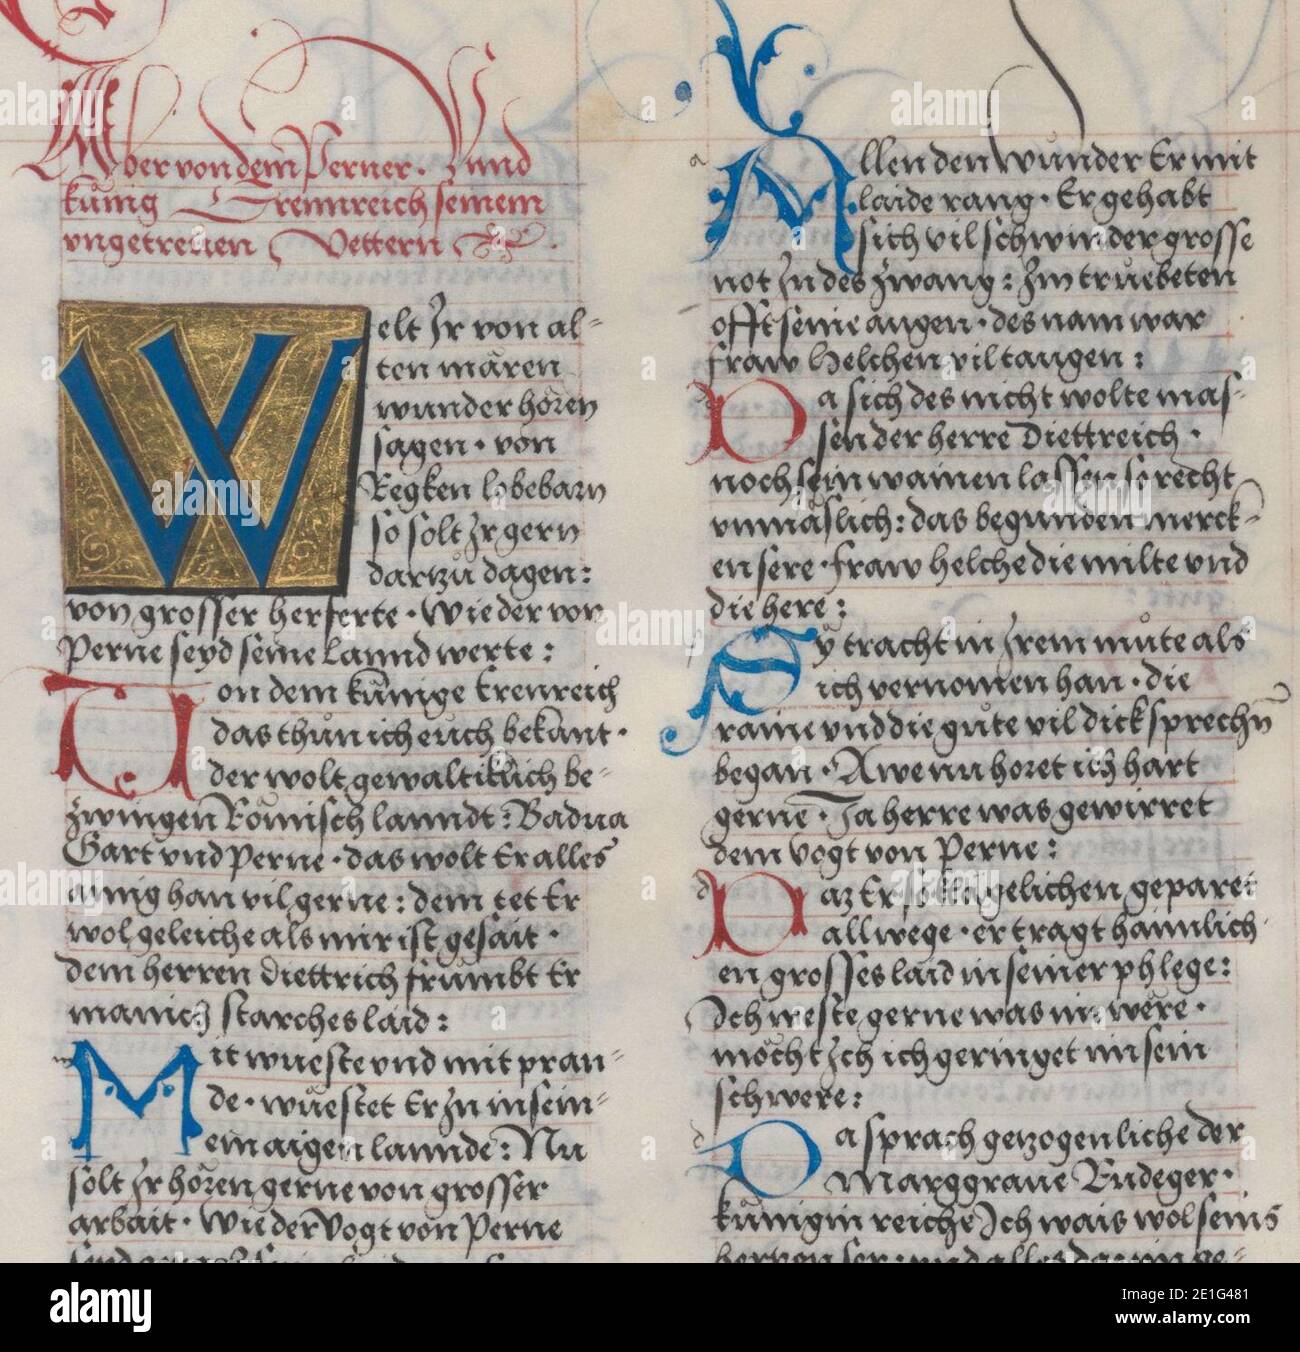 Aber von dem Perner. Vnnd
kůnig Erennreich seinem
vngetreuen Vettern
Welt Jr von al=
ten mären
wunder hören
sagen · von
Regken lobebarn
so solt Jr gern
dartzů dagen:
von grosser herferte · Wie der von
Perne seyd seine Lannd werte:
Von dem künige Erenreich
das thůn ich euch bekant ·
der wolt gewaltiklich be=
zwingen Römisch lanndt: Badua
Gart vnd Perne · das wolt Er alles
ainig han vil gerne: dem tet Er
wol geleiche als mir ist gesait ·
dem herren Diettrich frumbt Er
manich starches laid:
Mit wueste vnd mit pran=
de · wüestet Er Jn in sein=
em aigen lannde: Nu
solt Jr hören gerne von grosser
arbait · Wie der Vogt von Perne
Allen den wunder Er mit
laide rang · Er gehabt
sich vil schwinder grosse
not Jn des zwang: Jm truebeten
offt seine augen · des nam war
fraw Helchen vil taugen:
Da sich des nicht wolte mas=
sen der herre Diettreich ·
noch sein wainen lassen so recht
vnmäslich: das begunden merck=
en sere · fraw helche die milte vnd
die here:
Sy tracht in Jrem můte als
ich vernomen han · die
raine vnd die gůte vil dick sprechn
began · Awe nu horet ich hart
gerne · Ja herre was gewirret
dem Vogt von Perne:
Daz Er so klagelichen geparet
allwege · er tragt haimlich
en grosses laid in seiner phlege:
Ich weste gerne was im wëre ·
möcht Jch ich geringet im sein
schwere:
Da sprach getzogenliche der
Marggraue Rudeger ·
künigin reiche Ich wais wol seins
alamy
Image ID: 2E1G481
www.alamy.com